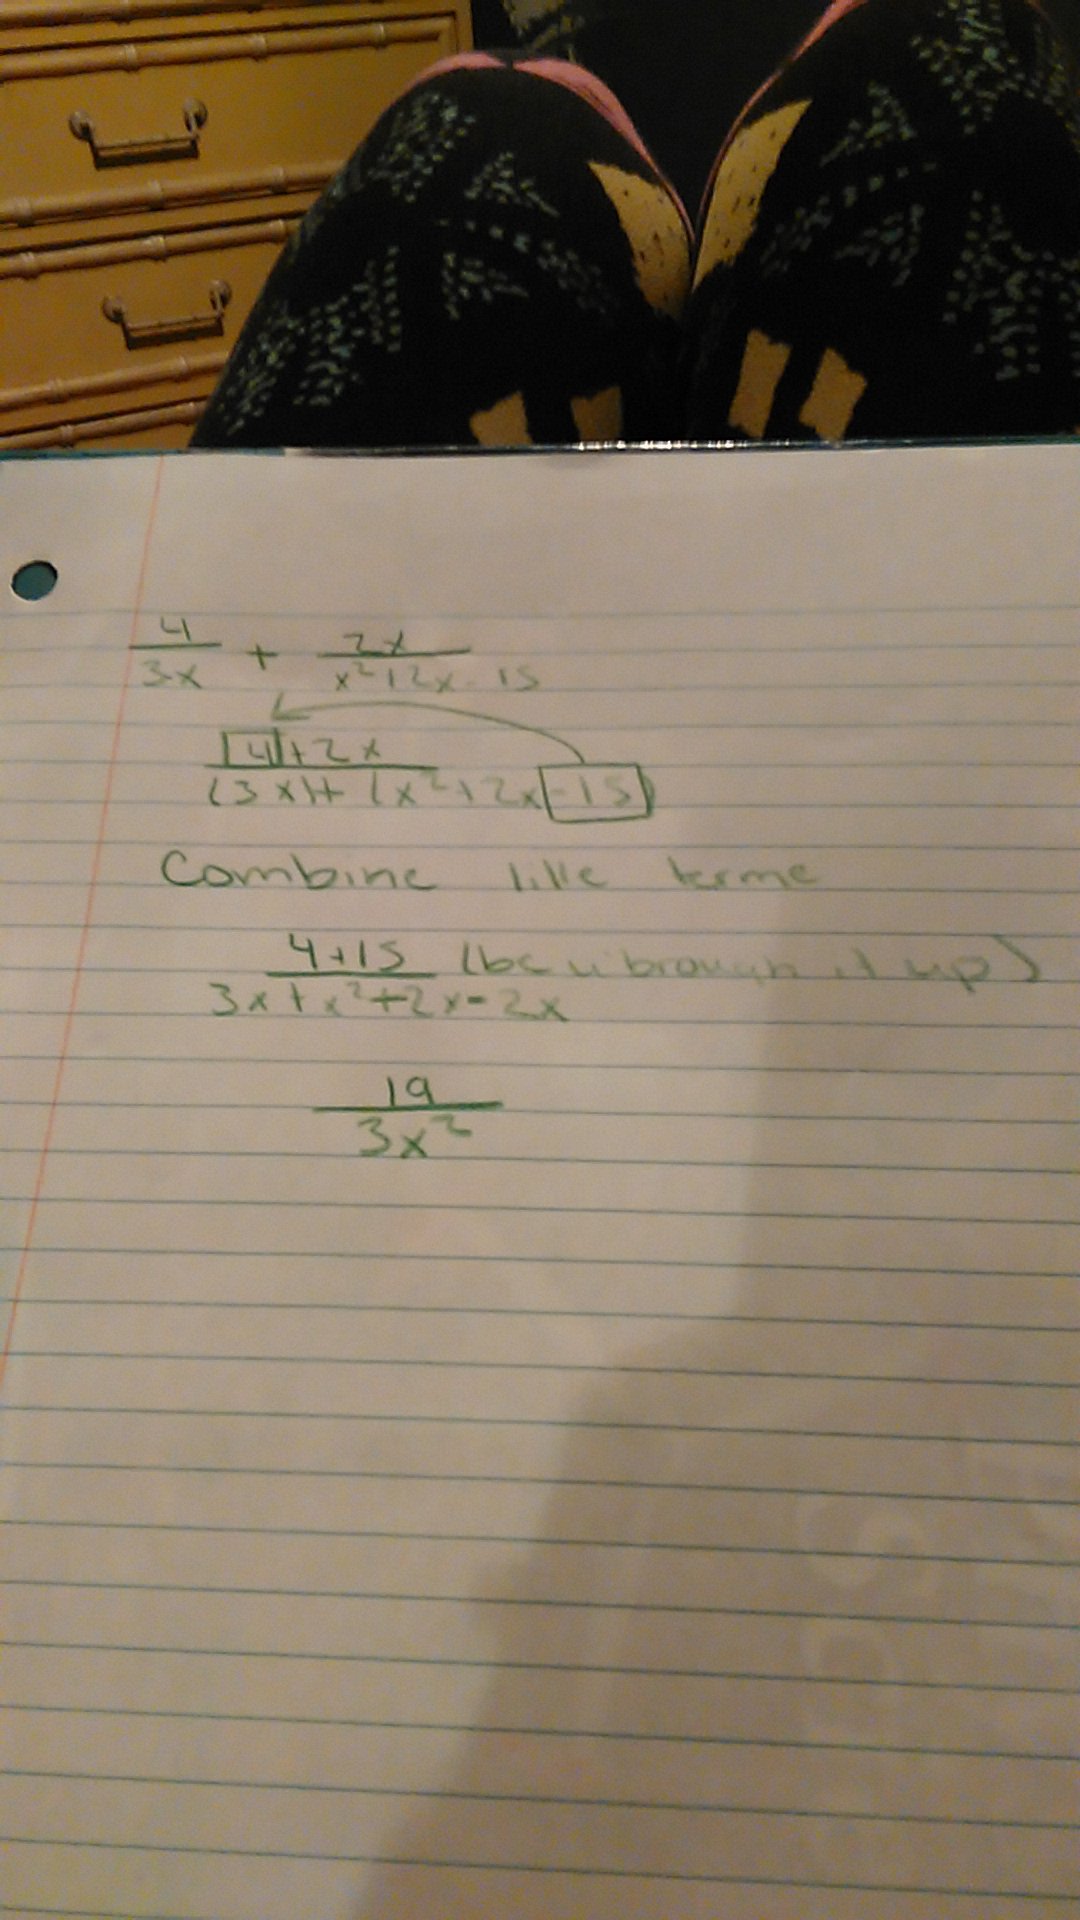 4/3x + 2x/x²+2x-15
4+2x/(3x)+(x²+2x-15)
Combine like terms
4+15/3x+x²+2x-2x (bc u brough it up)
19/3x²